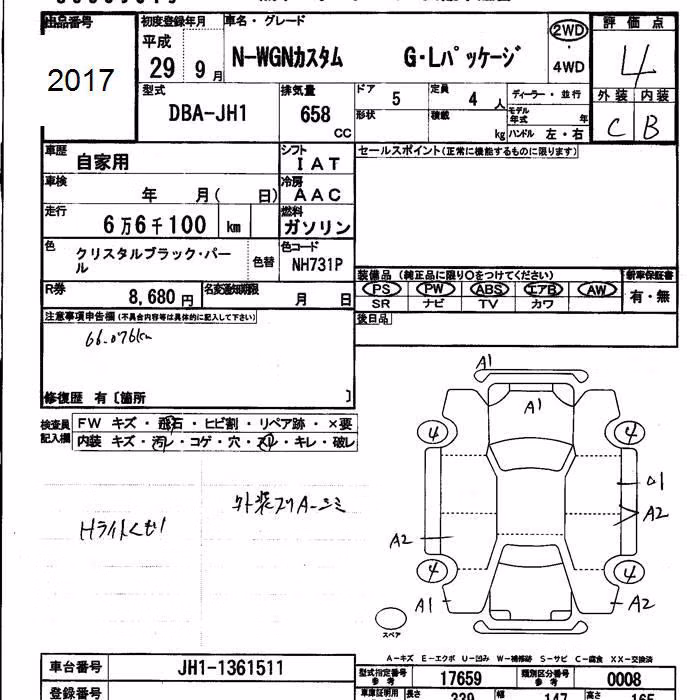 出品番号
2017
初度登録年月
平成
29 9月
車名・グレード
N-WGNカスタム G・Lパッケージ
2WD
・
4WD
評価点
4
外装 内装
C B
型式
DBA-JH1
排気量
658
CC
ドア 5
定員 4人
ディーラー・並行
形状
積載 kg
モデル年式 年
ハンドル 左・右
車歴 自家用
シフト IAT
セールスポイント(正常に機能するものに限ります)
車検 年 月( 日)
冷房 AAC
走行 6万6千100 km
燃料 ガソリン
色 クリスタルブラック・パール
色替
色コード NH731P
装備品 (純正品に限り○をつけてください)
新車保証書
PS PW ABS エアB AW
有・無
SR ナビ TV カワ
R券 8,680円
名変通知期限 月 日
注意事項申告欄(不具合内容等は具体的に記入して下さい)
後日品
66.076km
修復歴 有〔箇所 〕
検査員記入欄
FW キズ・飛石・ヒビ割・リペア跡・×要
内装 キズ・汚レ・コゲ・穴・スレ・キレ・破レ
外装コスリA-シミ
Hライトくもり
A1
A1
4 4
A2
A2
4 4
A1 A2
スペア
A-キズ E-エクボ U-凹み W-補修跡 S-サビ C-腐食 XX-交換済
車台番号 JH1-1361511
型式指定番号 参考 17659
類別区分番号 参考 0008
登録番号
車庫証明用
長さ 339 幅 147 高さ 165